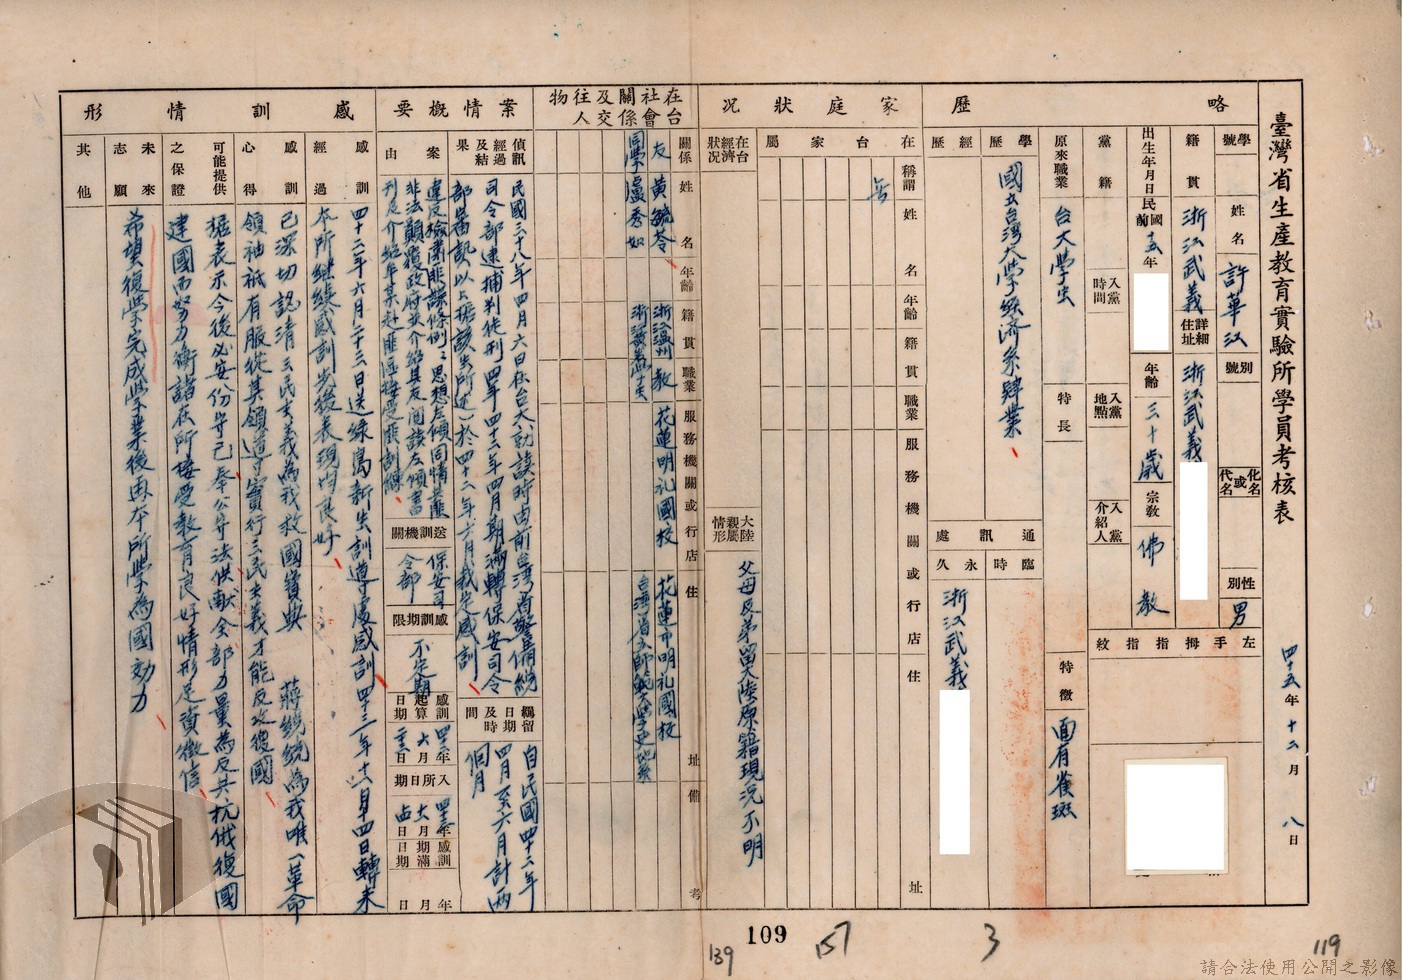 臺灣省生產教育實驗所學員考核表
四十五年十二月八日
學號
姓名 許華江
別號
化名或代名
性別 男
籍貫 浙江武義
詳細住址 浙江武義
出生年月日 民國前 十五年
年齡 三十歲
宗教 佛教
左手拇指指紋
黨籍
入黨時間
入黨地點
入黨介紹人
原來職業 台大學生
特長
特徵 面有雀斑
略歷
學歷 國立台灣大學經濟系肄業
經歷
通訊處
臨時
永久 浙江武義
家庭狀況
在台家屬
稱謂 姓名 年齡 籍貫 職業 服務機關或行店 住址
無
在台經濟狀況
大陸親屬情形 父母及弟留大陸原籍現況不明
在台社會關係及交往人物
關係 姓名 年齡 籍貫 職業 服務機關或行店 住址 備考
友 黃毓苓 浙江溫州 教 花蓮明礼國校 花蓮市明礼國校
同學 盧秀如 浙江 學生 台灣省立師範大學史地系
案情概要
偵訊經過及結果
民國三十八年四月六日在台大就讀時由前台灣省警備總
司令部逮捕判徒刑四年四十二年四月期滿轉保安司令
部舊訊以上據該生所述於四十二年六月裁定感訓
羈留日期及時間
自民國四十二年
四月至六月計兩
個月
案由
違反檢肅匪諜條例思想左傾同情叛匪
非法顛覆政府並介紹其友閱讀左傾書
刊及介紹年某赴匪區接受匪訓練
送訓機關 保安司令部
感訓期限 不定期
感訓起算日期 四二年六月二三日
入所日期 四三年十二月四日
感訓期滿日期 年月日
感訓情形
感訓經過
四十二年六月二十三日送綠島新生訓導處感訓四十三年十二月四日轉來
本所繼續感訓先後表現均良好
感訓心得
已深切認清三民主義為我救國寶典 蔣總統為我唯一革命
領袖祇有服從其領導實行三民主義才能反攻復國
可能提供之保證
據表示今後必安份守己奉公守法供献全部力量為反共抗俄復國
建國而努力衡諸在所接受教育良好情形足資徵信
未來志願
希望復學完成學業後再本所學為國効力
其他
109
139
157
3
119
請合法使用公開之影像